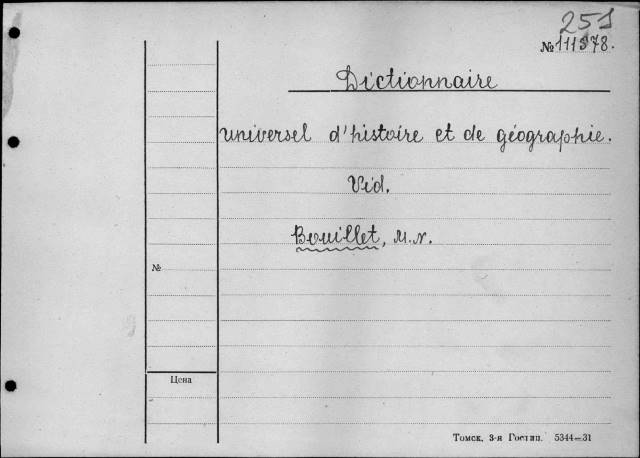 251
№111378.
Dictionnaire
universel d'histoire et de géographie.
Vid.
Bouillet, M. N.
№
Цена
Томск. 3-я Гостип. 5344—31